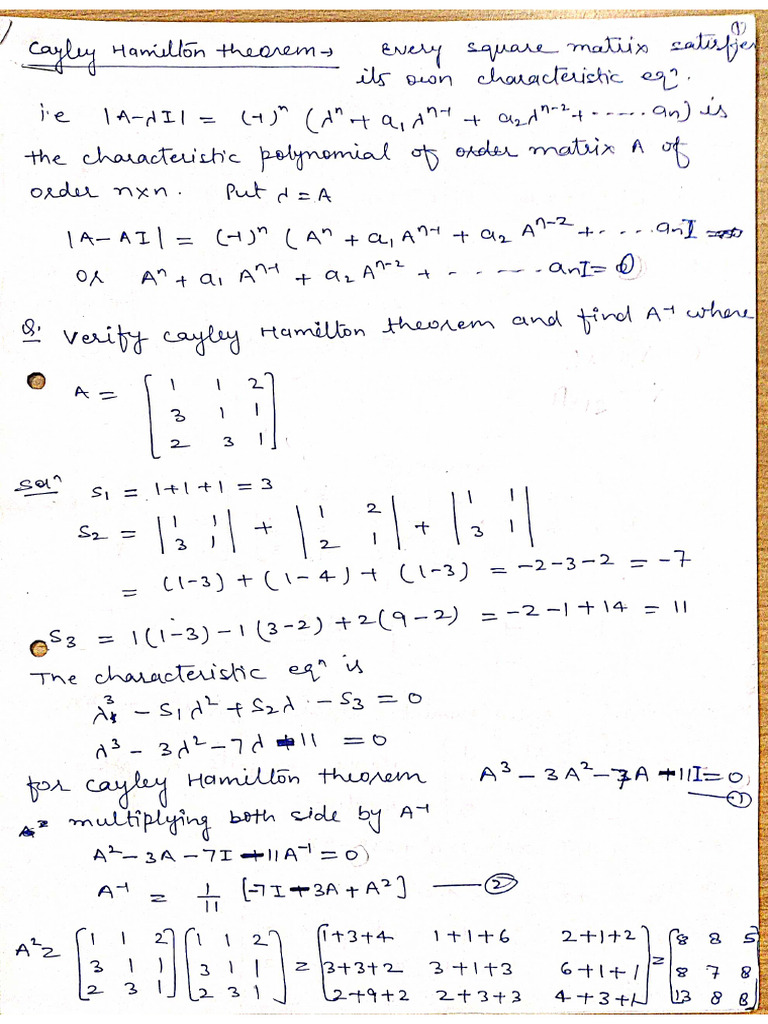 (1)
Cayley Hamilton theorem → Every square matrix satisfies
its own characteristic eqⁿ.
i.e |A-λI| = (-1)ⁿ (λⁿ + a₁λⁿ⁻¹ + a₂λⁿ⁻² + ...... aₙ) is
the characteristic polynomial of order matrix A of
order n×n. Put λ = A
|A-AI| = (-1)ⁿ (Aⁿ + a₁Aⁿ⁻¹ + a₂Aⁿ⁻² + ..... aₙI
or Aⁿ + a₁Aⁿ⁻¹ + a₂Aⁿ⁻² + ...... aₙI = 0
Q. Verify Cayley Hamilton theorem and find A⁻¹ where
A = [1 1 2
3 1 1
2 3 1].
Solⁿ S₁ = 1+1+1 = 3
S₂ = |1 1; 3 1| + |1 2; 2 1| + |1 1; 3 1|
= (1-3) + (1-4) + (1-3) = -2-3-2 = -7
S₃ = 1(1-3) -1(3-2) +2(9-2) = -2-1+14 = 11
The characteristic eqⁿ is
λ³ - S₁λ² + S₂λ - S₃ = 0
λ³ - 3λ² - 7λ - 11 = 0
for Cayley Hamilton theorem A³ - 3A² - 7A - 11I = 0 —(1)
multiplying both side by A⁻¹
A² - 3A - 7I - 11A⁻¹ = 0
A⁻¹ = 1/11 [-7I - 3A + A²] —(2)
A² = [1 1 2; 3 1 1; 2 3 1] [1 1 2; 3 1 1; 2 3 1] = [1+3+4 1+1+6 2+1+2; 3+3+2 3+1+3 6+1+1; 2+9+2 2+3+3 4+3+1] = [8 8 5; 8 7 8; 13 8 8]